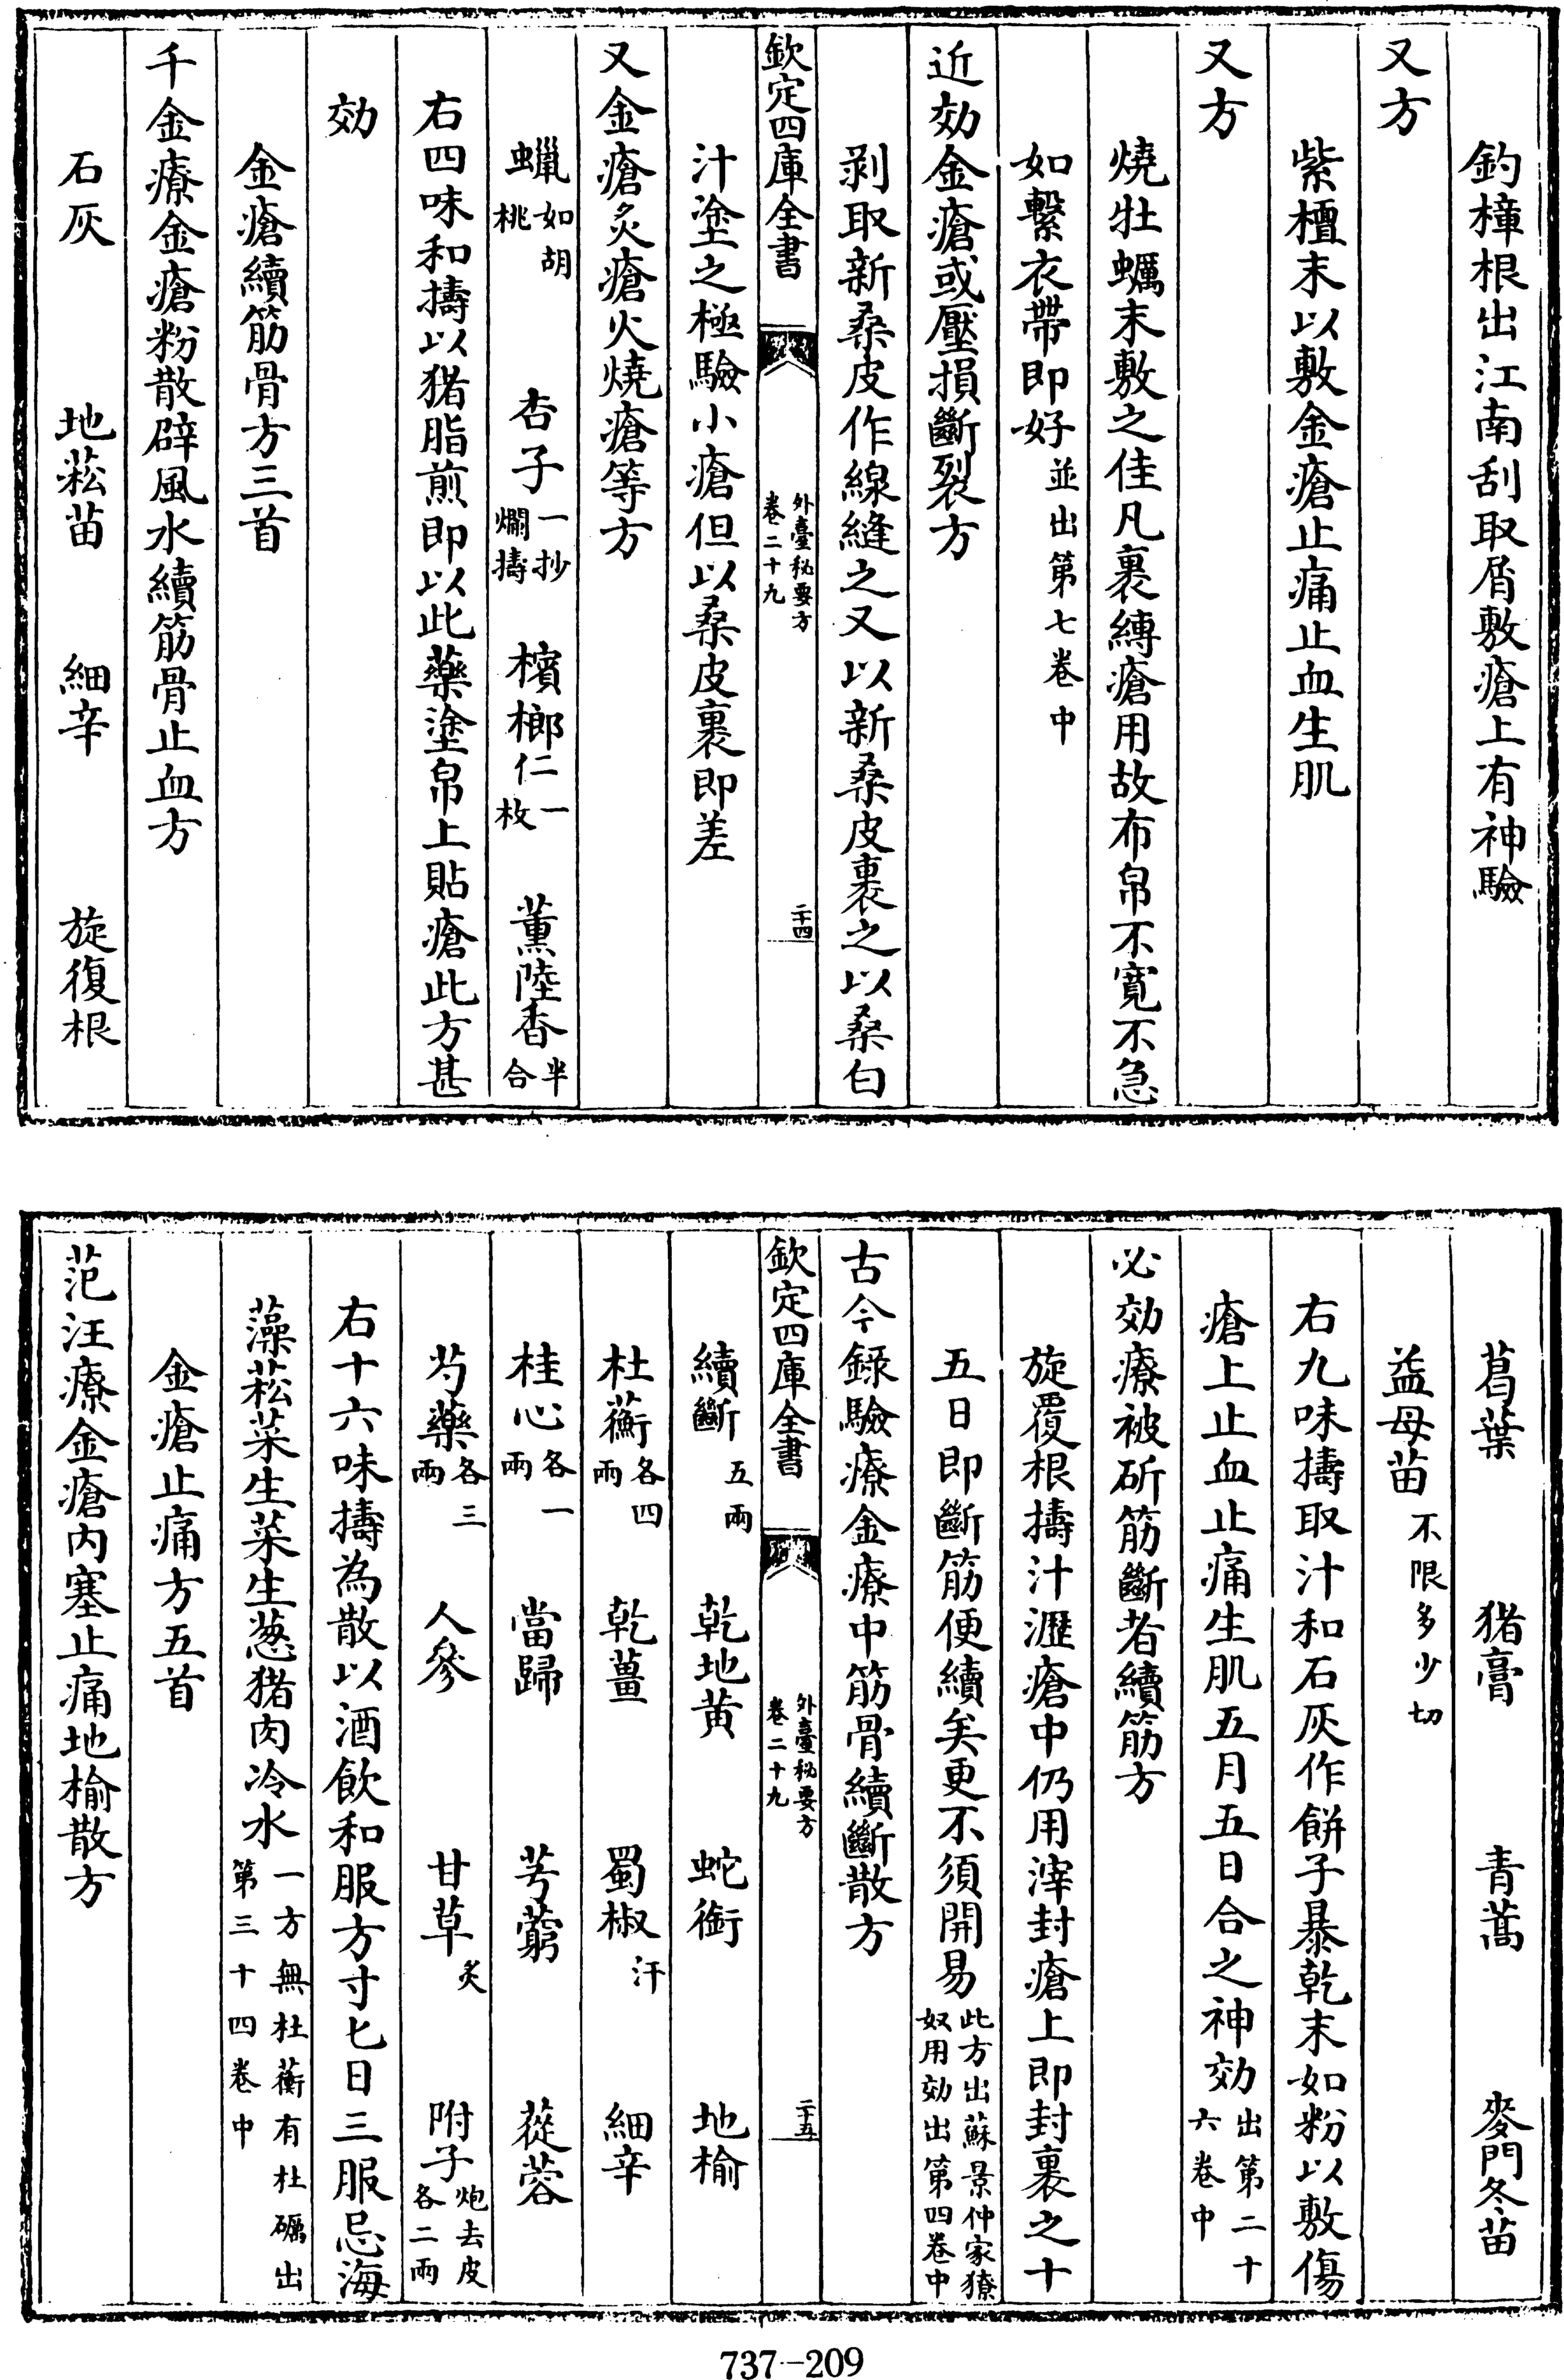 釣樟根出江南刮取屑敷瘡上有神驗
又方
紫檀末以敷金瘡止痛止血生肌
又方
燒牡蠣末敷之佳凡裹縛瘡用故布帛不寛不急
如繫衣帶即好並出第七卷中
近効金瘡或壓損斷裂方
剥取新桑皮作線縫之又以新桑皮裹之以桑白
欽定四庫全書
外臺秘要方
卷二十九
二十四
汁塗之極驗小瘡但以桑皮裹即差
又金瘡炙瘡火燒瘡等方
蠟如胡桃 杏子一抄爛擣 檳榔仁一枚 薰陸香半合
右四味和擣以猪脂煎即以此藥塗帛上貼瘡此方甚
効
金瘡續筋骨方三首
千金療金瘡粉散辟風水續筋骨止血方
石灰 地菘苗 細辛 旋復根
葛葉 猪膏 青蒿 麥門冬苗
益母苗不限多少切
右九味擣取汁和石灰作餅子暴乾末如粉以敷傷
瘡上止血止痛生肌五月五日合之神効出第二十六卷中
必効療被斫筋斷者續筋方
旋覆根擣汁瀝瘡中仍用滓封瘡上即封裹之十
五日即斷筋便續矣更不須開易此方出蘇景仲家獠奴用効出第四卷中
古今録驗療金療中筋骨續斷散方
欽定四庫全書
外臺秘要方
卷二十九
二十五
續斷五兩 乾地黄 蛇銜 地榆
杜蘅各四兩 乾薑 蜀椒汗 細辛
桂心各一兩 當歸 芎藭 蓯蓉
芍藥各三兩 人參 甘草炙 附子炮去皮各二兩
右十六味擣為散以酒飲和服方寸匕日三服忌海
藻菘菜生菜生葱猪肉冷水一方無杜蘅有杜礪出第三十四卷中
金瘡止痛方五首
范汪療金瘡内塞止痛地榆散方
737-209